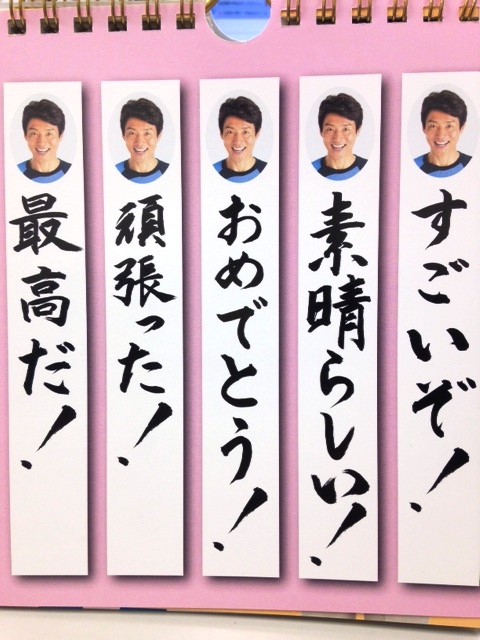 すごいぞ!
素晴らしい!
おめでとう!
頑張った!
最高だ!